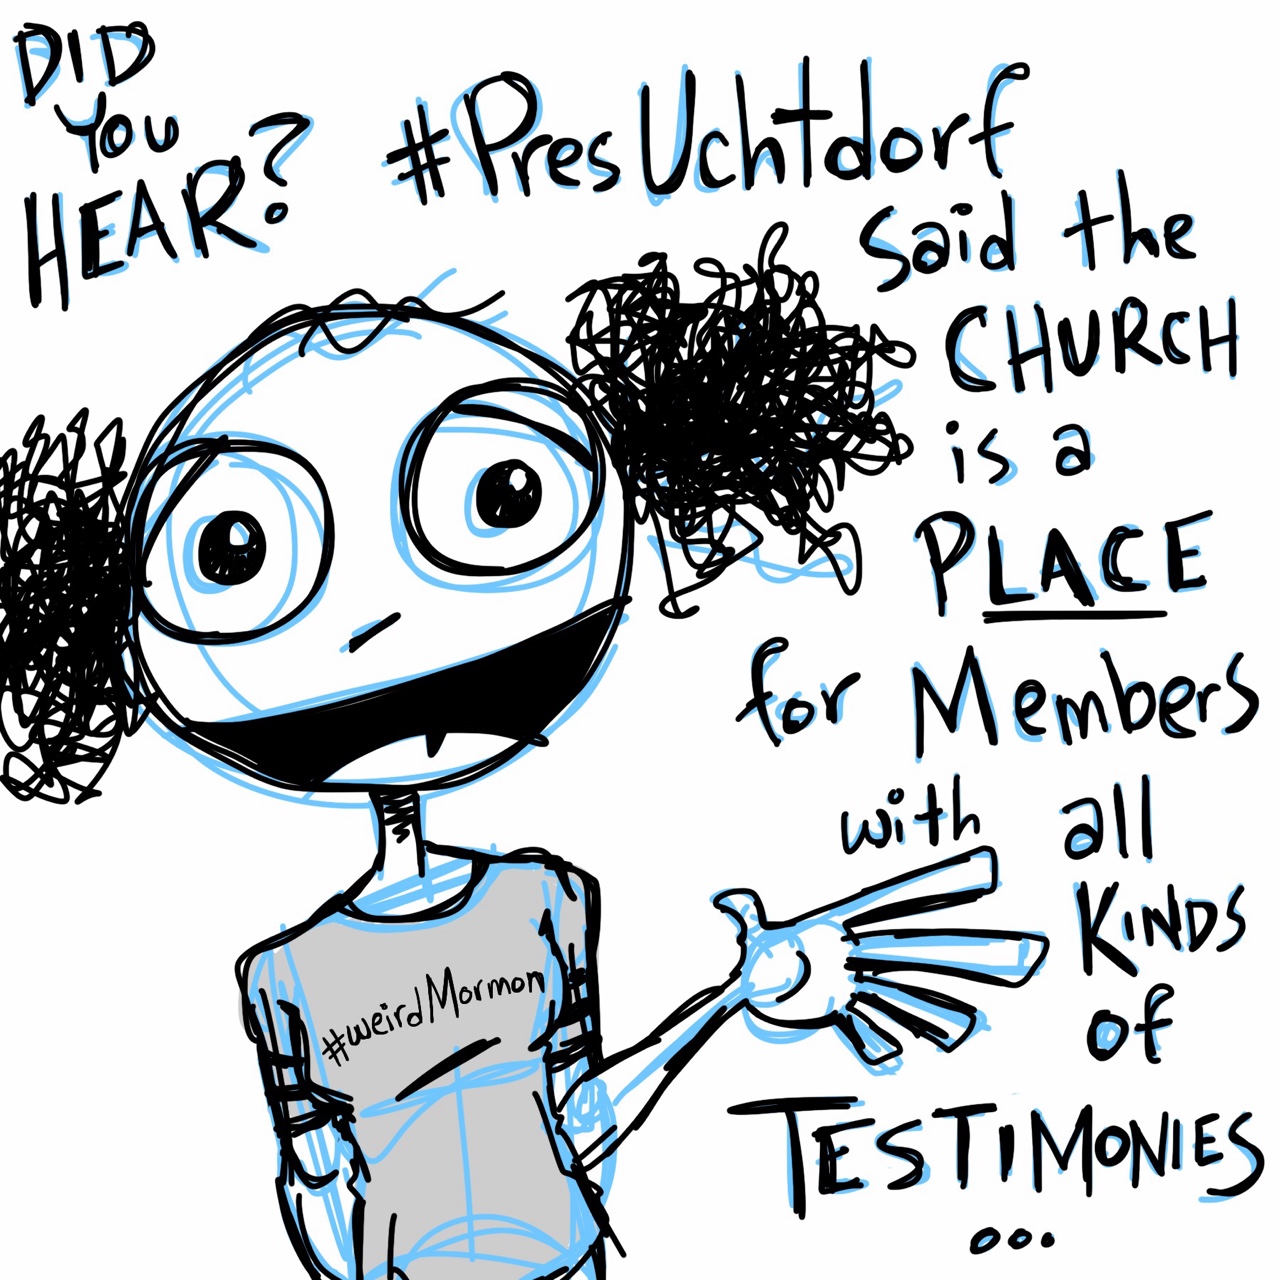 DID
You
HEAR?
#PresUchtdorf
said the
CHURCH
is a
PLACE
for Members
with all
KINDS
of
TESTIMONIES
...
#weirdMormon